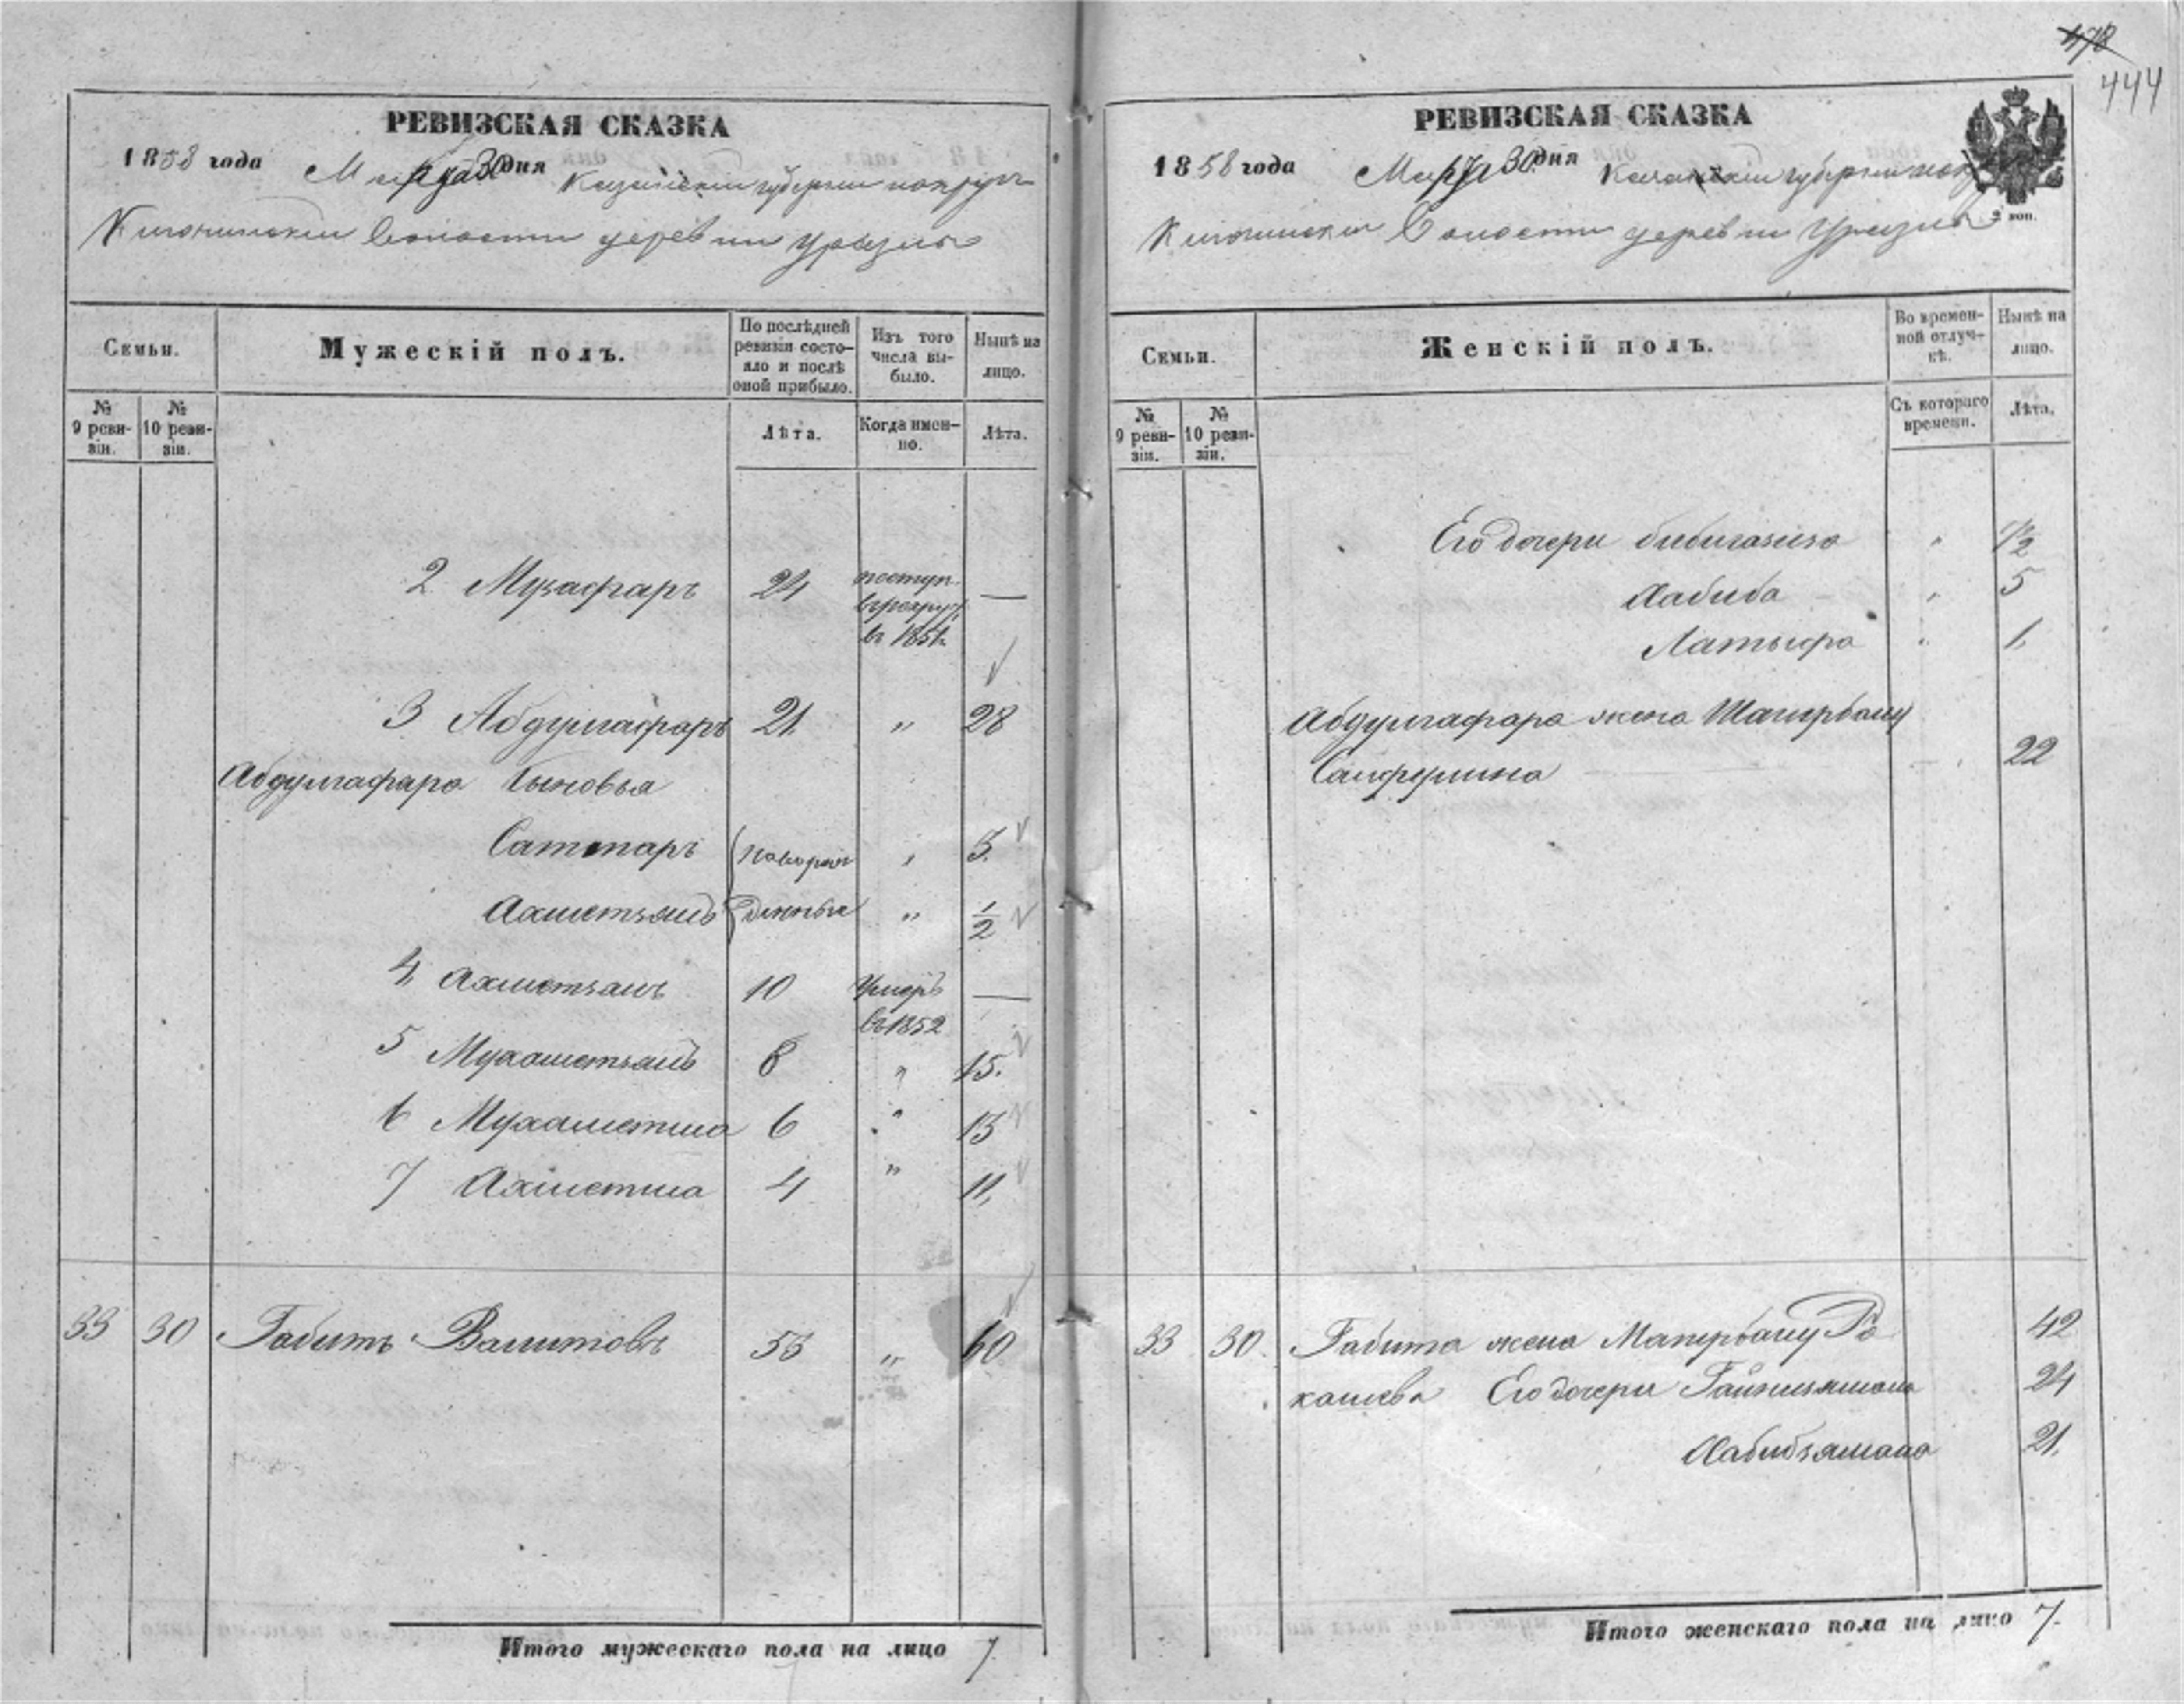 478
444
РЕВИЗСКАЯ СКАЗКА
1858 года Марта 30 дня Казанской губернии и округи
волости деревни Уразлы
Семьи.
Мужескій полъ.
По послѣдней ревизіи состояло и послѣ оной прибыло.
Изъ того числа выбыло.
Нынѣ на лицо.
№ 9 ревизіи.
№ 10 ревизіи.
Лѣта.
Когда именно.
Лѣта.
2 Музафаръ 24 поступ. в рекрут. въ 1851. —
3 Абдулгафаръ 21. „ 28
Абдулгафара сыновья
Саттаръ новорож „ 5.
Ахметзянъ денные „ 1/2
4 Ахметзянъ 10 Умеръ въ 1852 —
5 Мухаметзянъ 8 „ 15.
6 Мухаметша 6 „ 13
7 Ахметша 4 „ 11.
33 30 Габитъ Валитовъ 53 „ 60
Итого мужескаго пола на лицо 7.
РЕВИЗСКАЯ СКАЗКА
1858 года Марта 30 дня Казанской губернии
волости деревни Уразлы
2 коп.
Семьи.
Женскій полъ.
Во временной отлучкѣ.
Нынѣ на лицо.
№ 9 ревизіи.
№ 10 ревизіи.
Съ котораго времени.
Лѣта.
Его дочери Бибигазиза „ 1/2
Хабиба „ 5
Латыфа „ 1.
Абдулгафара жена Шагирбану
Сайфулина 22
33 30. Габита жена Магирбану
Его дочери Гайнизямала 42
24
Хабибзямала 21.
Итого женскаго пола на лицо 7.